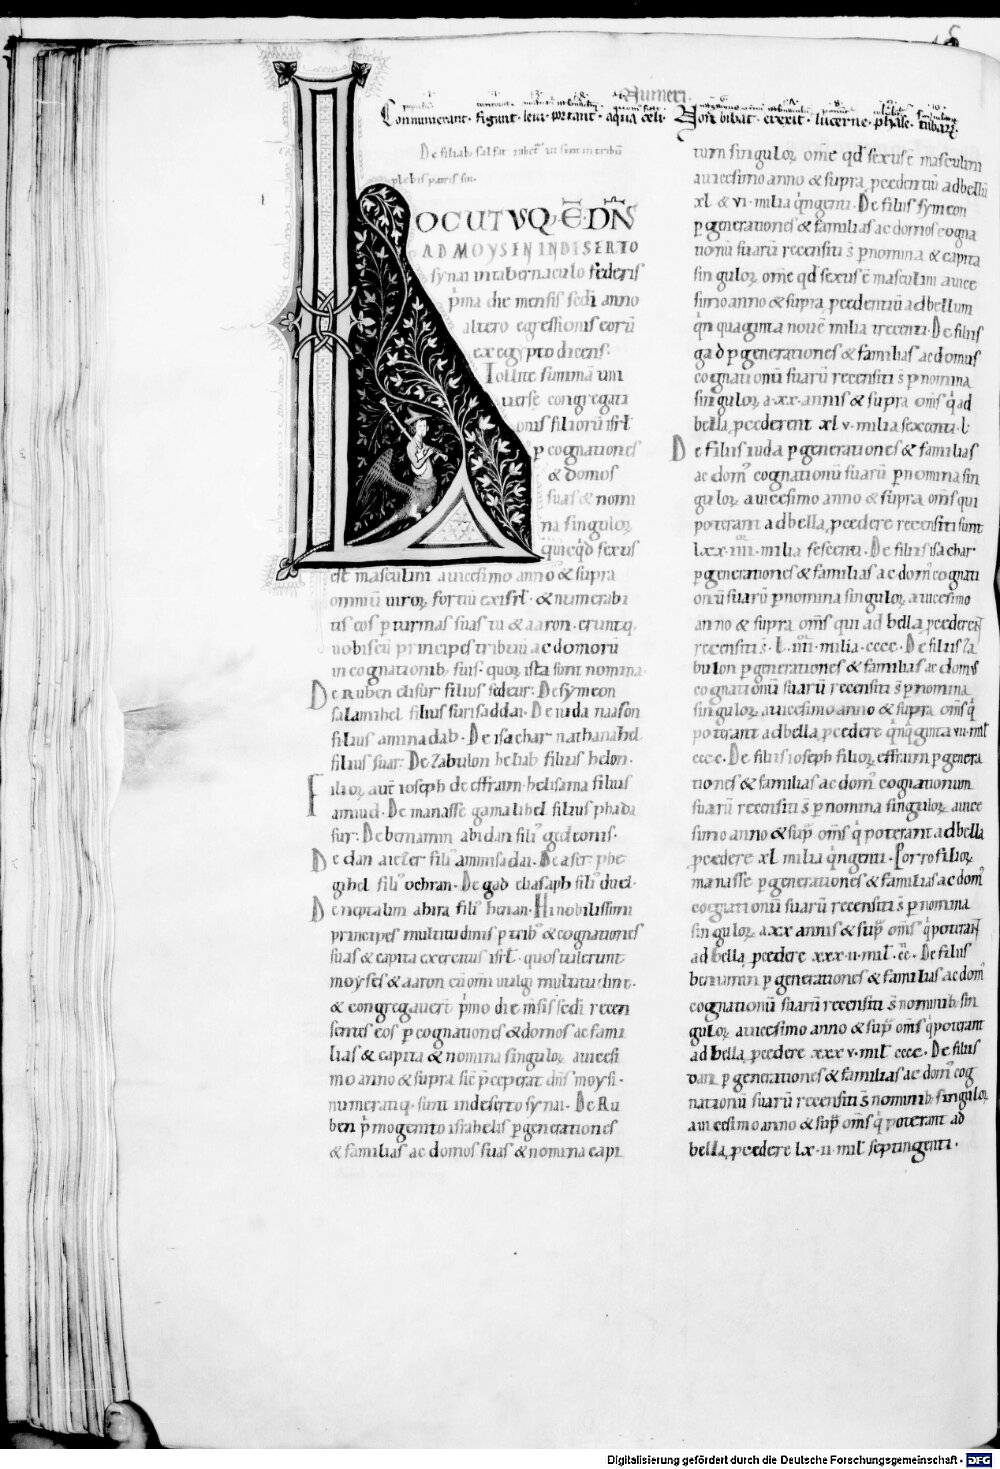 Numeri.
Connumerant. figunt. leui. portant. aqua celi.
bibat. erexit. lucerne. phase. tubarꝫ
plebis patris sui.
LOCUTVSQ; Ē DN̄S
AD MOYSEN IN DISERTO
synai in tabernaculo federis
p̄ma die mensis sedi anno
altero egressionis eorū
ex egypto dicens.
Tollite summā uni
uerse congregati
onis filiorū isrl̄
p cognationes
& domos
suas & nomi
na singuloꝝ
quicqͥd sexus
est masculini a uicesimo anno & supra
omniū uiroꝝ fortiū ex isrl̄. & numerabi
tis eos p turmas suas tu & aaron. eruntq;
uobiscū principes tribuū ac domorū
in cognationib; suis. quoꝝ ista sunt nomina.
De Ruben elisur filius sedeur. De symeon
salamihel filius surisaddai. De iuda naason
filius aminadab. De isachar nathanahel
filius suar. De zabulon heliab filius helon.
Filioꝝ aut̄ ioseph de effraim helisama filius
amiud. De manasse gamalihel filius phada
sur. De beniamin abidan fili9 gedeonis.
De dan aiezer fili9 ammisadai. De aser phe
gihel fili9 ochran. De gad eliasaph fili9 duel.
De neptalim ahira fili9 henan. Hi nobilissimi
principes multitudinis p trib9 & cognationes
suas & capita exercitus isrl̄. quos tulerunt
moyses & aaron cū om̄i uulgi multitudine.
& congregauerт̄ p̄mo die m̄sis sedi recen
sentes eos p cognationes & domos ac fami
lias & capita & nomina singuloꝝ a uicesi
mo anno & supra sic̄ p̄ceperat dn̄s moysi.
numeratiq; sunt in deserto synai. De Ru
ben p̄mogenito israhelis p generationes
& familias ac domos suas & nomina capi
tum singuloꝝ om̄e qd̄ sexus ē masculini
a uicesimo anno & supra pcedentiū ad bellū
xl & vi. milia qͥngenti. De filiis symeon
p generationes & familias ac domos cogna
tionū suarū recensiti s̄ p nomina & capita
singuloꝝ om̄e qd̄ sexus ē masculini a uice
simo anno & supra pcedentiū ad bellum
qͥnquaginta nouē milia trecenti. De filiis
gad p generationes & familias ac domus
cognationū suarū recensiti s̄ p nomina
singuloꝝ a xx. annis & supra om̄s qͥ ad
bella pcederent xl v. milia sexcenti. l.
De filiis iuda p generationes & familias
ac dom9 cognationū suarū p nomina sin
guloꝝ a uicesimo anno & supra om̄s qui
poterant ad bella pcedere recensiti sunt
lxx. iiii. milia sescenti. De filiis isachar
p generationes & familias ac dom9 cognati
onū suarū p nomina singuloꝝ a uicesimo
anno & supra om̄s qui ad bella pcederen̄t
recensiti s̄. L. iiii. milia. cccc. De filiis za
bulon p generationes & familias ac domus
cognationū suarū recensiti s̄ p nomina
singuloꝝ a uicesimo anno & supra om̄s qͥ
poterant ad bella pcedere qͥnqͥginta vii. mil̄
cccc. De filiis ioseph filioꝝ effraim p genera
tiones & familias ac dom9 cognationum
suarū recensiti s̄ p nomina singuloꝝ a uice
simo anno & sup̄ om̄s qͥ poterant ad bella
pcedere xl milia qͥngenti. Porro filioꝝ
manasse p generationes & familias ac dom9
cognationū suarū recensiti s̄ p nomina
singuloꝝ a xx annis & sup̄ om̄s qͥ poteran̄t
ad bella pcedere xxx. ii. mil̄. cc̄. De filiis
beniamin p generationes & familias ac dom9
cognationū suarū recensiti s̄ nominib; sin
guloꝝ a uicesimo anno & sup̄ om̄s qͥ poterant
ad bella pcedere xxx v. mil̄ cccc. De filiis
dan p generationes & familias ac dom9 cog
nationū suarū recensiti s̄ nominib; singuloꝝ
a uicesimo anno & sup̄ om̄s qͥ poterant ad
bella pcedere lx. ii. mil̄ septingenti.
Digitalisierung gefördert durch die Deutsche Forschungsgemeinschaft - DFG